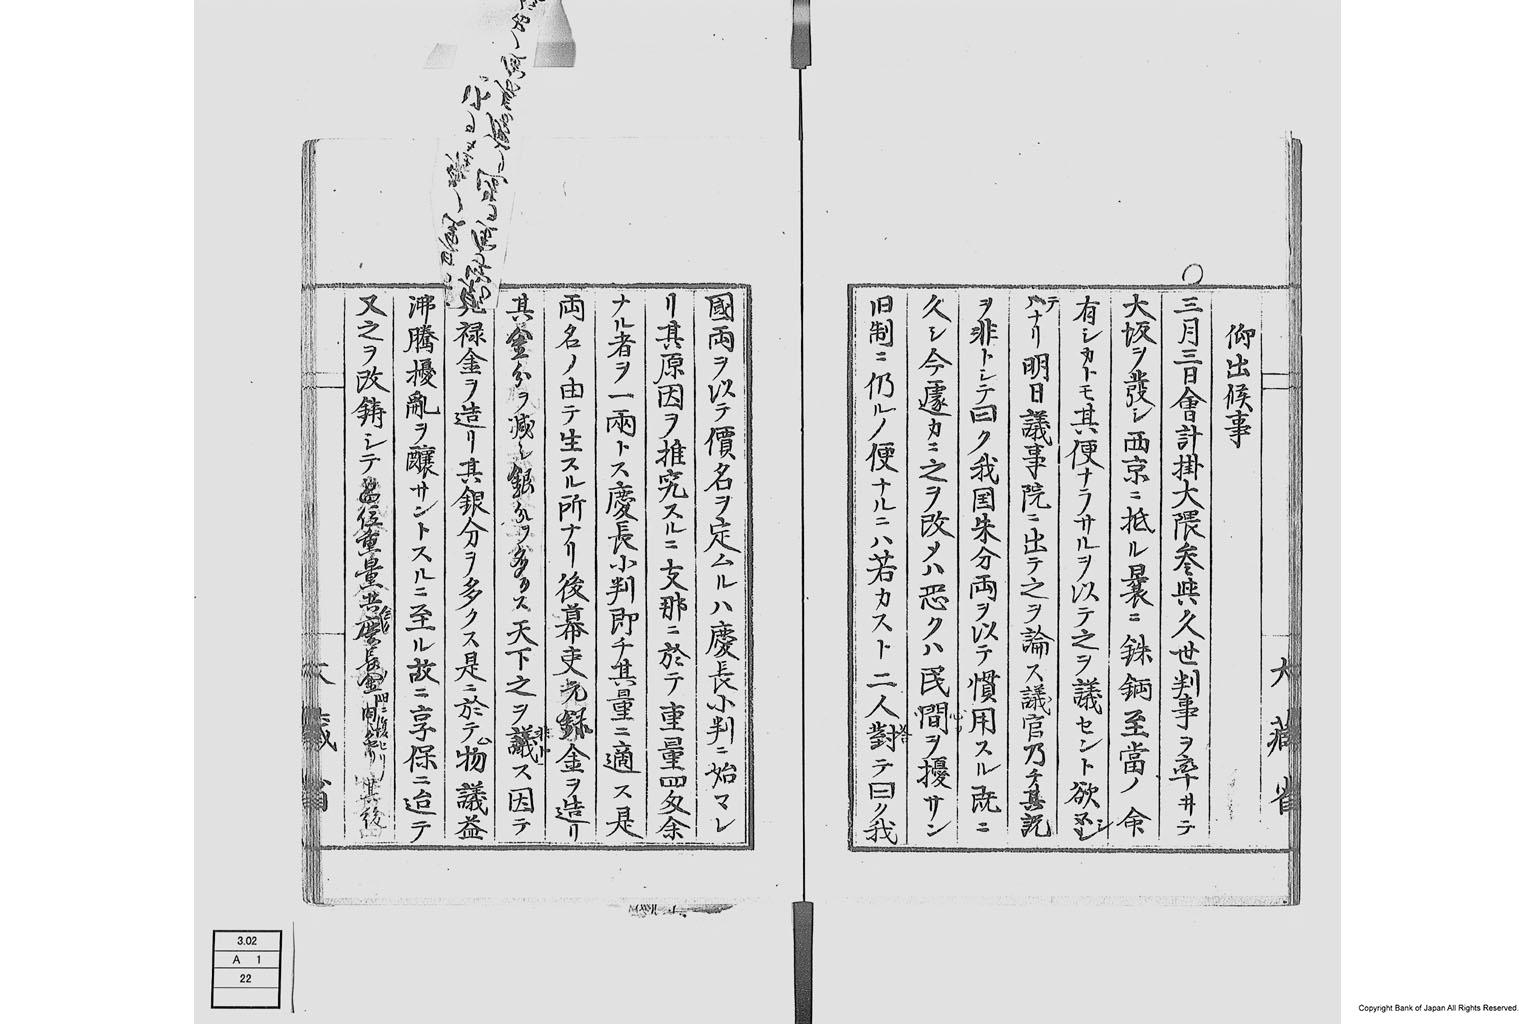 仰出候事
三月三日會計掛大隈參與久世判事ヲ率ヰテ
大坂ヲ發シ西京ニ抵ル曩ニ銖鈵至當ノ命
有シカトモ其便ナラサルヲ以テ之ヲ議セント欲シ
テナリ明日議事院ニ出テ之ヲ論ス議官乃チ其説
ヲ非トシテ曰ク我国朱分両ヲ以テ慣用スル既ニ
久シ今遽カニ之ヲ改メハ恐クハ民間ヲ擾サン
旧制ニ仍ルノ便ナルニハ若カスト二人對テ曰ク我
大藏省
國両ヲ以テ價名ヲ定ムルハ慶長小判ニ始マレ
リ其原因ヲ推究スルニ支那ニ於テ重量四匁余
ナル者ヲ一兩トス慶長小判即チ其量ニ適ス是
両名ノ由テ生スル所ナリ後幕吏元録金ヲ造リ
其金分ヲ減シ銀分ヲ多クス天下之ヲ議ス因テ
禄金ヲ造リ其銀分ヲ多クス是ニ於テ物議益
沸騰擾亂ヲ釀サントスルニ至ル故ニ享保ニ迨テ
又之ヲ改鋳シテ品位重量共慶長金 其後
藏省
3.02
A 1
22
Copyright Bank of Japan All Rights Reserved.